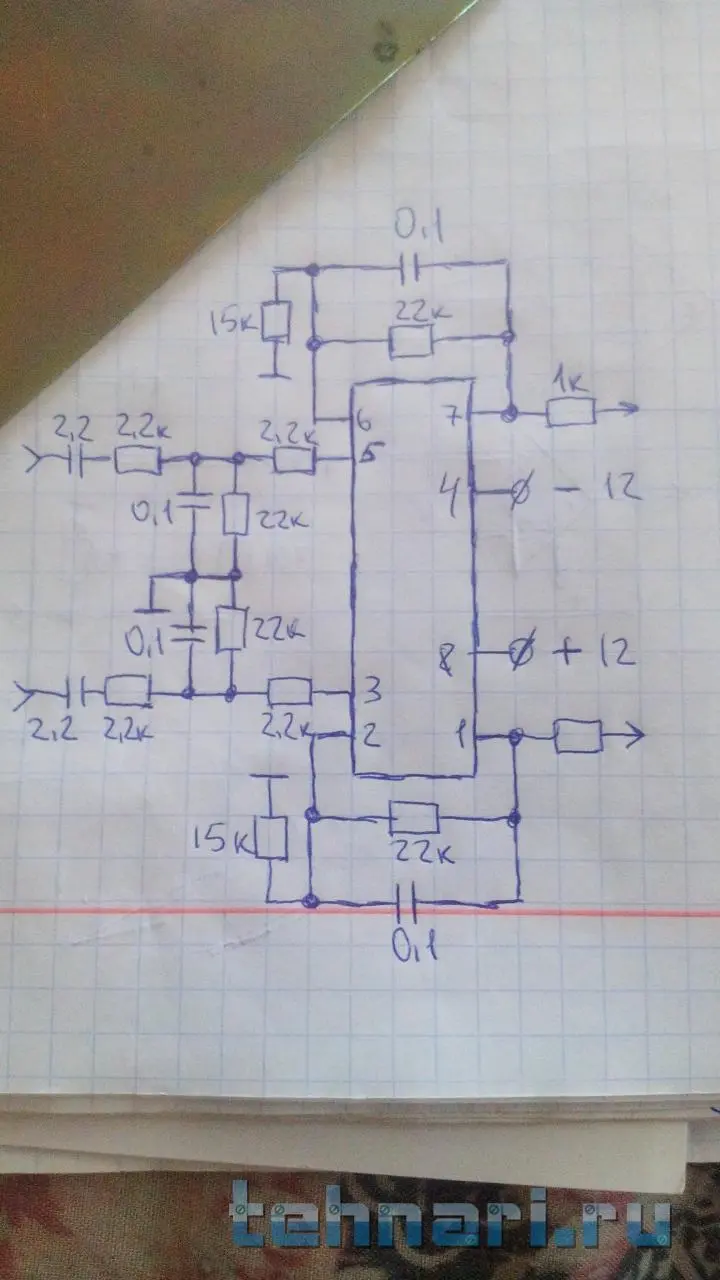 0,1
15к
22к
1к
2,2
2,2к
2,2к
6
7
5
0,1
22к
4
- 12
0,1
22к
8
+ 12
2,2
2,2к
2,2к
3
2
1
15к
22к
0,1
tehnari.ru